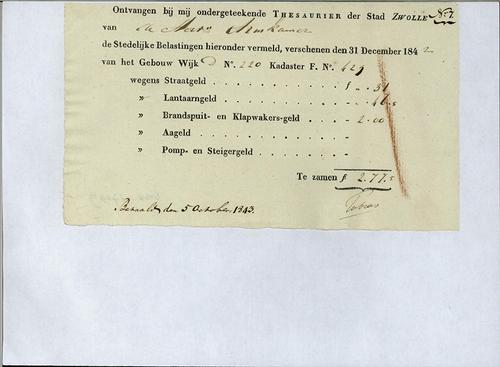 Ontvangen bij mij ondergeteekende THESAURIER der Stad ZWOLLE No. 7.
van de
de Stedelijke Belastingen hieronder vermeld, verschenen den 31 December 1842
van het Gebouw Wijk D No. 220 Kadaster F. No. 429
wegens Straatgeld . . . . . . . . . f - . 31
» Lantaarngeld . . . . . . . . . - . 46.5
» Brandspuit- en Klapwakers-geld . . . - 2.00
» Aageld . . . . . . . . . . . -
» Pomp- en Steigergeld . . . . . . . -
Te zamen f 2.77.5
Betaald den 5 October 1843.